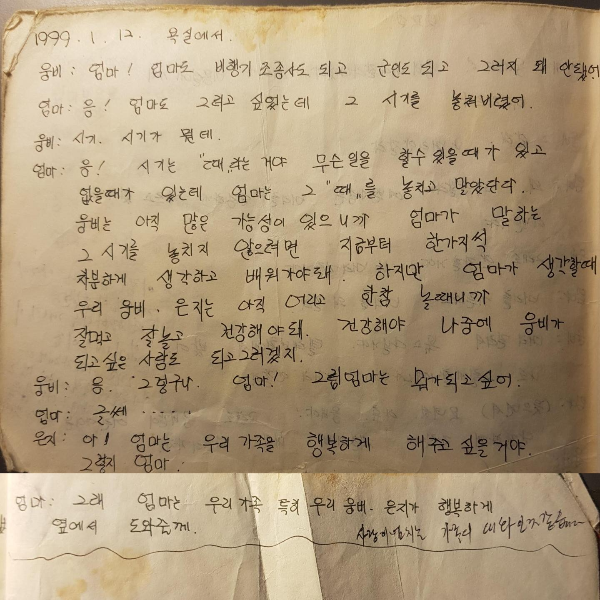 1999. 1. 12. 욕실에서.
웅비: 엄마! 엄마도 비행기 조종사도 되고 군인도 되고 그러지 왜 안됐어
엄마: 응! 엄마도 그러고 싶었는데 그 시기를 놓쳐버렸어.
웅비: 시기. 시기가 뭔데.
엄마: 응! 시기는 "때"라는 거야 무슨일을 할수 있을때가 있고
없을때가 있는데 엄마는 그 "때"를 놓치고 말았단다.
웅비는 아직 많은 가능성이 있으니까 엄마가 말하는
그 시기를 놓치지 않으려면 지금부터 한가지씩
차분하게 생각하고 배워가야돼. 하지만 엄마가 생각할때
우리 웅비. 은지는 아직 어리고 한참 놀때니까
잘먹고 잘놀고 건강해야돼. 건강해야 나중에 웅비가
되고싶은 사람도 되고그러겠지.
웅비: 음. 그렇구나. 엄마! 그럼엄마는 뭐가되고싶어.
엄마: 글쎄 ·····
은지: 아! 엄마는 우리 가족을 행복하게 해주고 싶을거야.
그렇지 엄마.
엄마: 그래 엄마는 우리가족 특히 우리 웅비. 은지가 행복하게
옆에서 도와줄께.
사랑이넘치는 가족의 대화인것같습니다